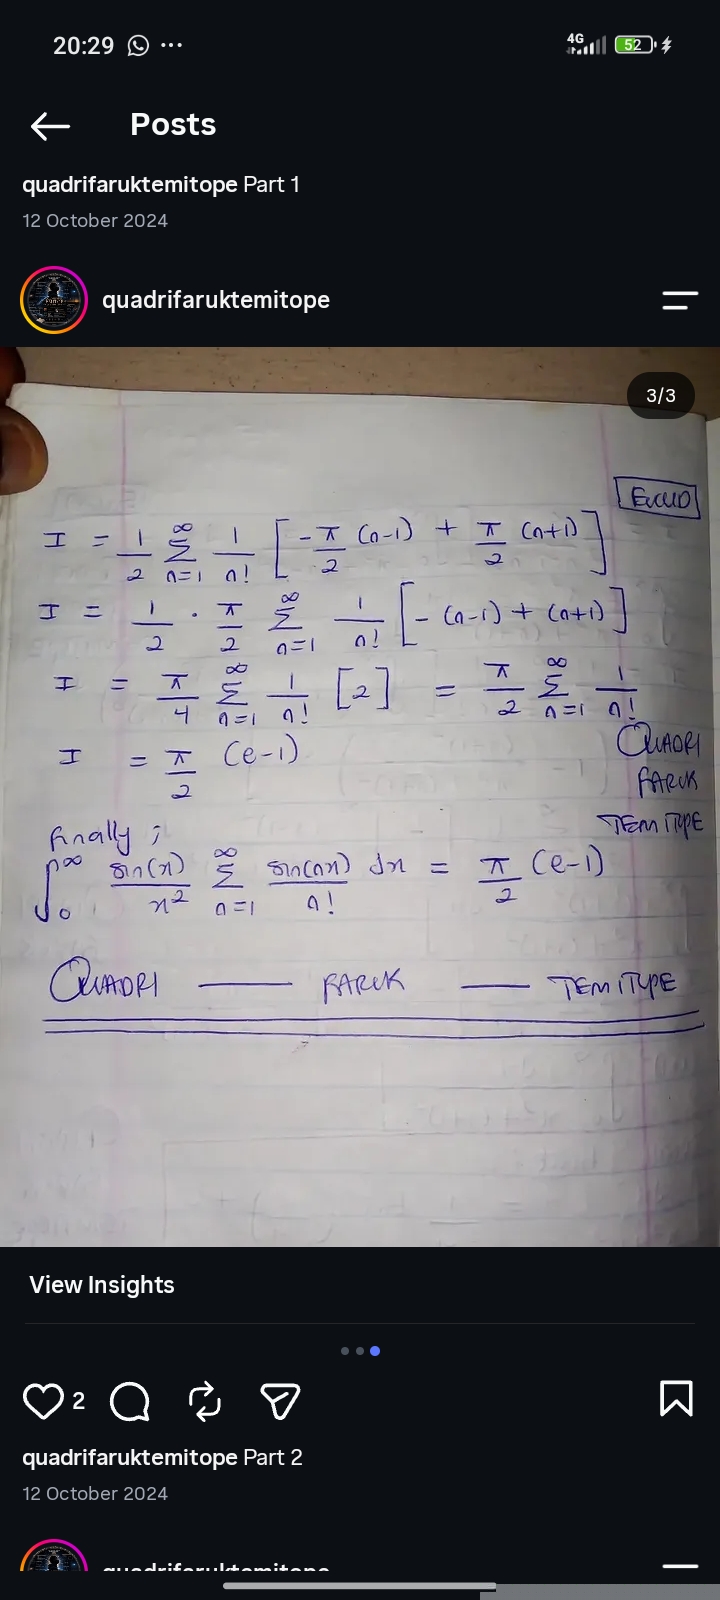 20:29
4G
52
Posts
quadrifaruktemitope Part 1
12 October 2024
quadrifaruktemitope
3/3
EUCLID
I = 1/2 ∑_{n=1}^{∞} 1/n! [-π/2 (n-1) + π/2 (n+1)]
I = 1/2 · π/2 ∑_{n=1}^{∞} 1/n! [- (n-1) + (n+1)]
I = π/4 ∑_{n=1}^{∞} 1/n! [2] = π/2 ∑_{n=1}^{∞} 1/n!
QUADRI
I = π/2 (e-1)
FARUK
TEMITYPE
finally ;
∫_0^∞ sin(x)/x² ∑_{n=1}^{∞} sin(nx)/n! dx = π/2 (e-1)
QUADRI — FARUK — TEMITYPE
View Insights
2
quadrifaruktemitope Part 2
12 October 2024
quadrifaruktemitope